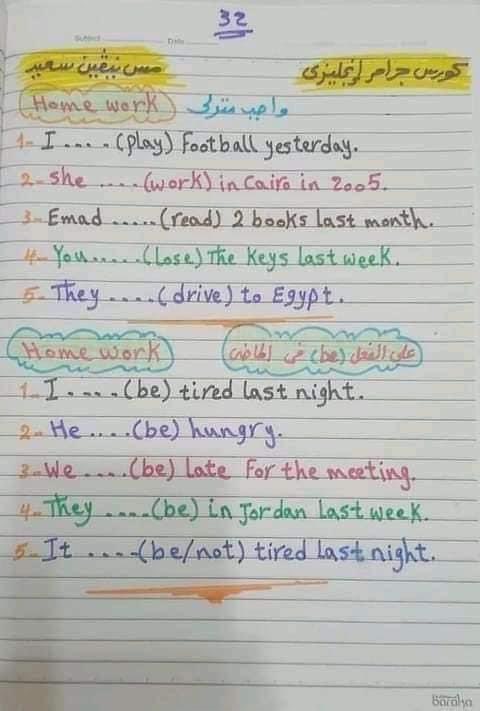 32
Subject
Date
كورس جرامر إنجليزى
مس نيڤين سعيد
Home work واجب منزلى
1- I .... (play) Football yesterday.
2- She .... (work) in Cairo in 2005.
3- Emad ..... (read) 2 books last month.
4- You ..... (Lose) The Keys last week.
5- They .... (drive) to Egypt.
Home work على الفعل (be) فى الماضى
1- I .... (be) tired last night.
2- He .... (be) hungry.
3- We .... (be) late For the meeting.
4- They .... (be) in Jordan last week.
5- It .... (be/not) tired last night.
baraka